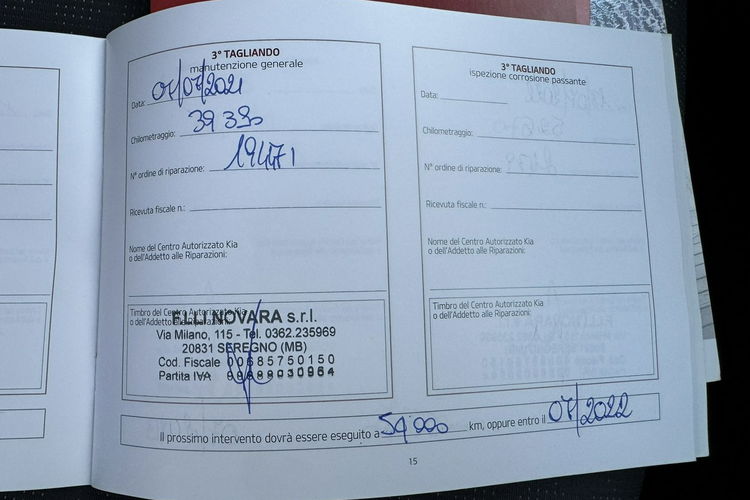 3° TAGLIANDO
manutenzione generale
Data: 07/07/2021
Chilometraggio: 39 390
N° ordine di riparazione: 19471
Ricevuta fiscale n.:
Nome del Centro Autorizzato Kia
o dell'Addetto alle Riparazioni:
Timbro del Centro Autorizzato Kia
o dell'Addetto alle Riparazioni:
F.LLI NOVARA s.r.l.
Via Milano, 115 - Tel. 0362.235969
20831 SEREGNO (MB)
Cod. Fiscale 00685750150
Partita IVA
3° TAGLIANDO
ispezione corrosione passante
Data:
Chilometraggio:
N° ordine di riparazione:
Ricevuta fiscale n.:
Nome del Centro Autorizzato Kia
o dell'Addetto alle Riparazioni:
Timbro del Centro Autorizzato Kia
o dell'Addetto alle Riparazioni:
Il prossimo intervento dovrà essere eseguito a 54 000 km, oppure entro il 07/2022
15